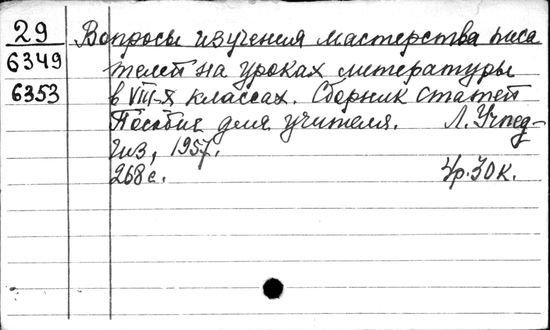 29 Вопросы изучения мастерства писа
6349 телей на уроках литературы
6353 в VIII-X классах. Сборник статей
Пособие для учителя. Л. Учпед-
гиз, 1957.
268 с. 4р. 30 к.